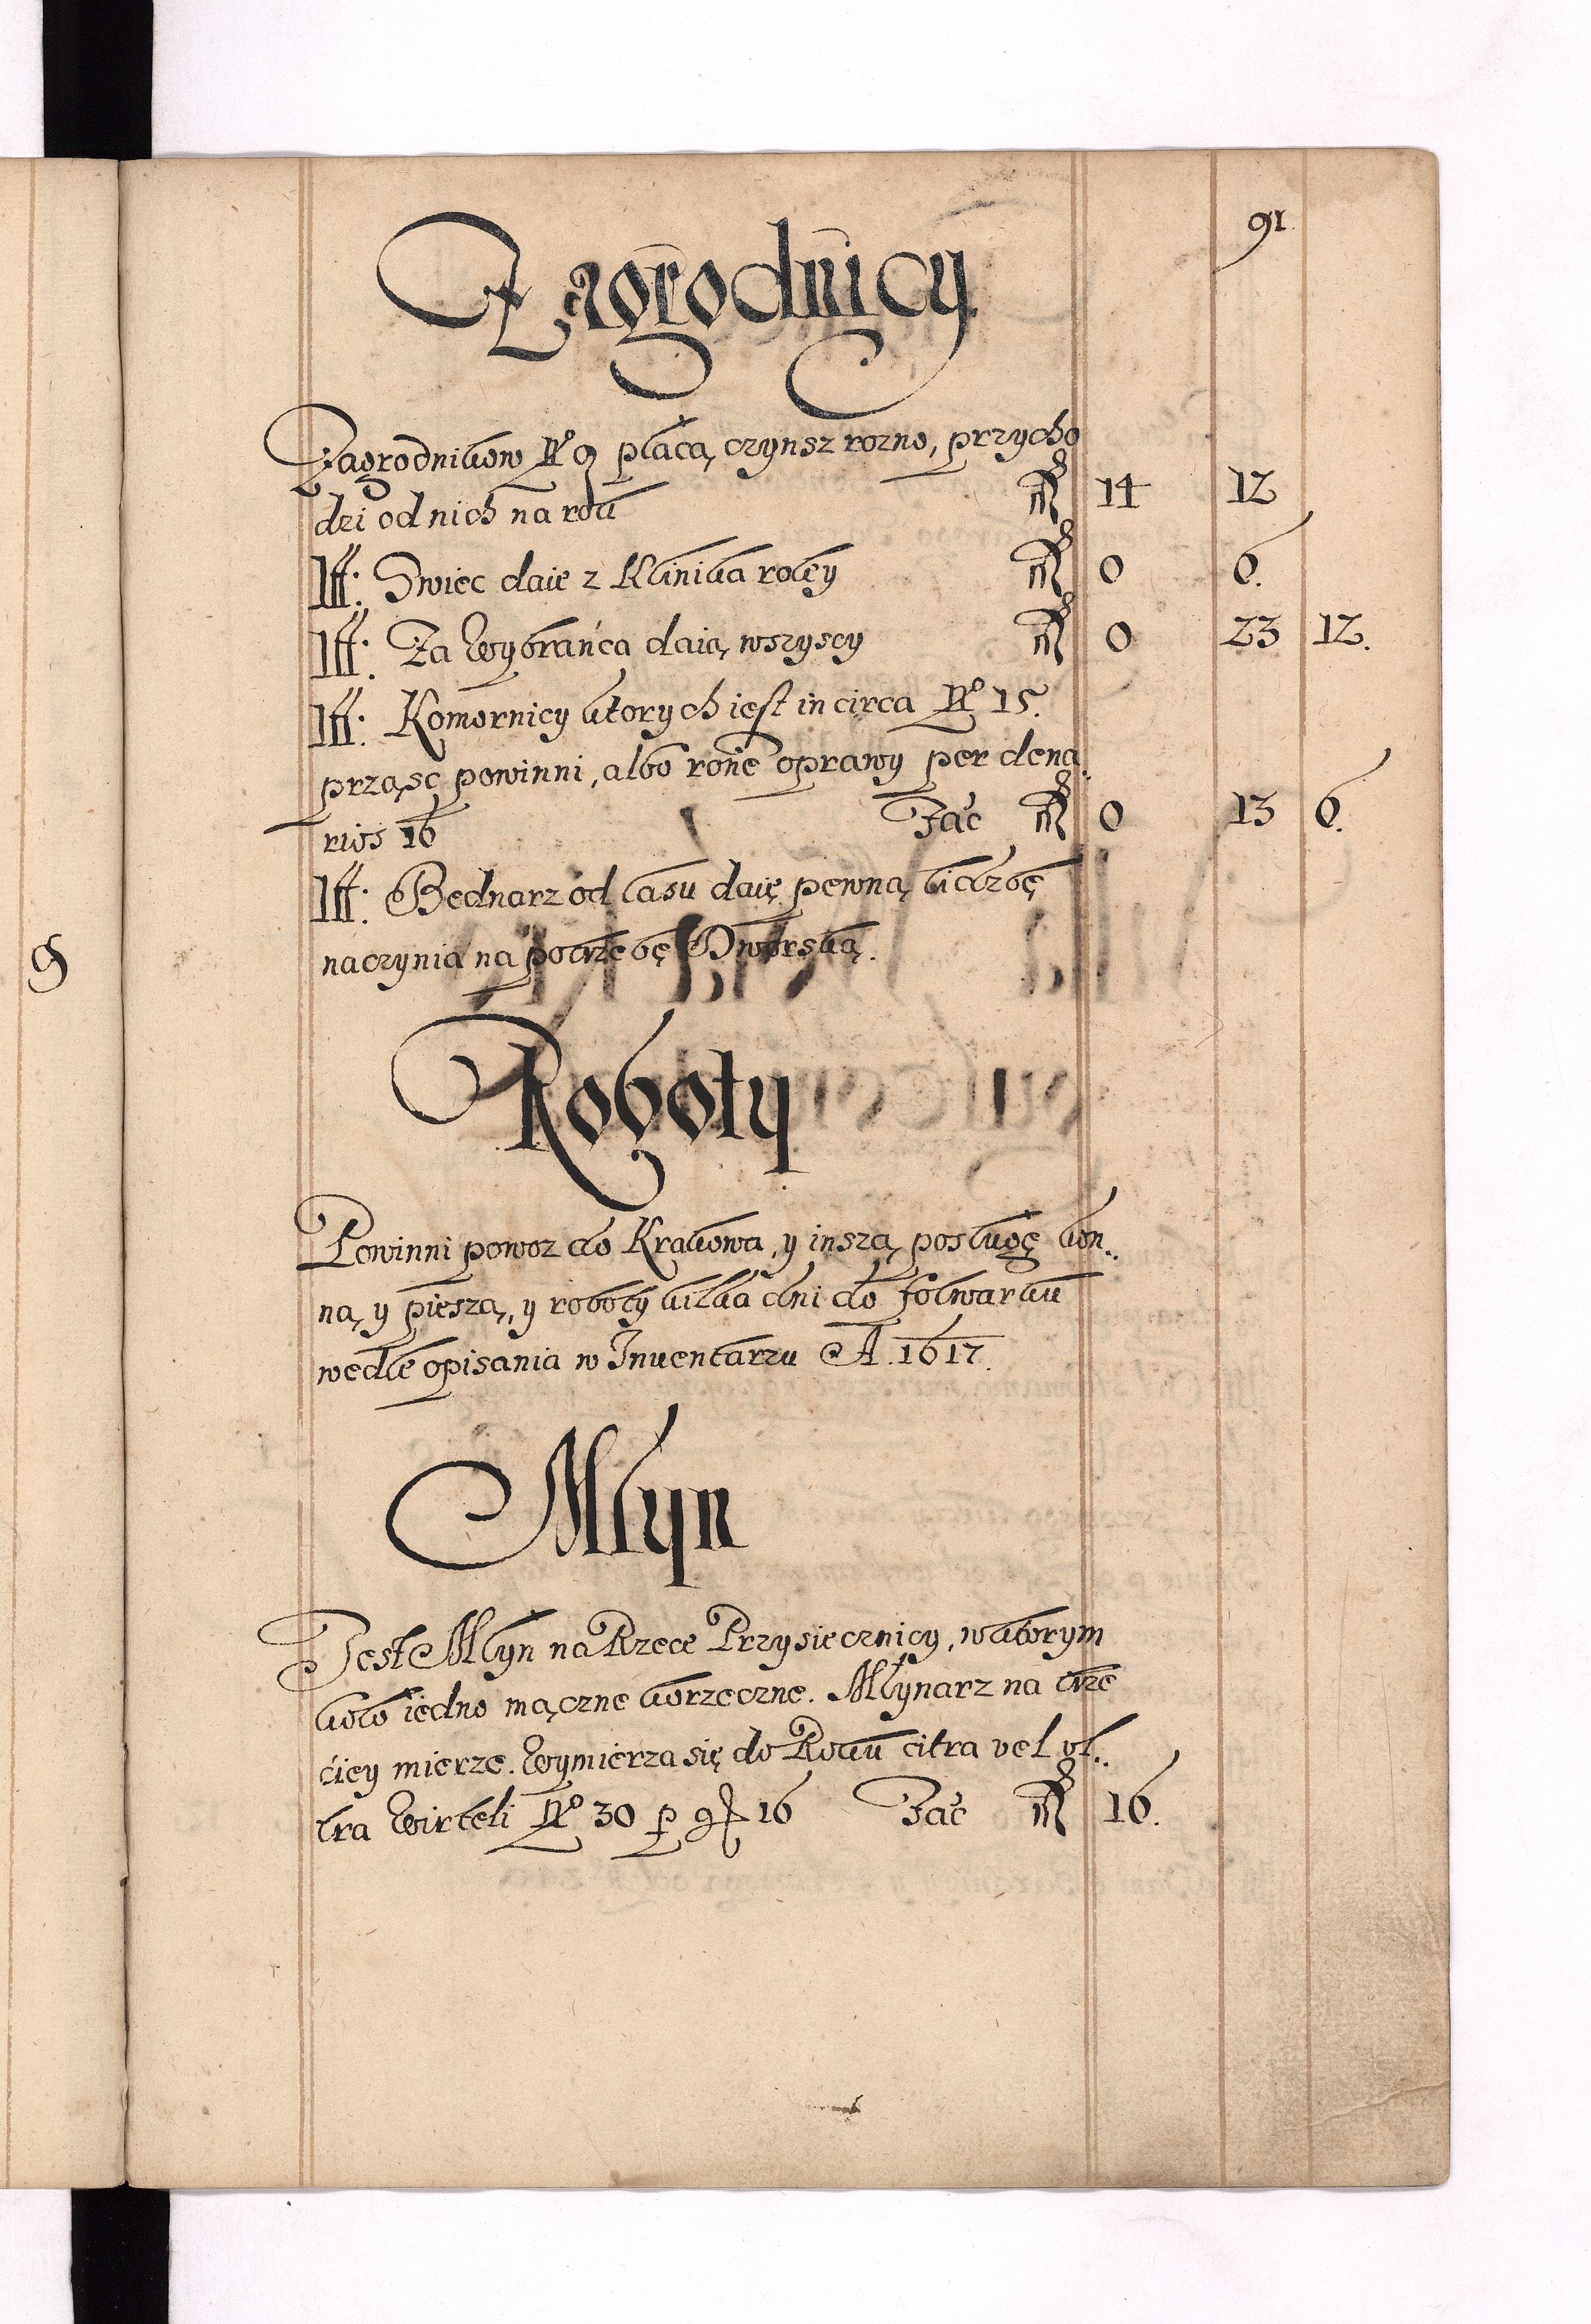 91
Zagrodnicy
Zagrodnikow Nº 9 płacą, czynsz rozno, przycho
dzi od nich na rok 14 12
Itt: Swiec daie z Klinika roley 0 6.
Itt: Za Wybrańca daią, wszyscy 0 23 12.
Itt: Komornicy ktorych iest in circa Nº 15.
prząsc powinni, albo ronie oprawy per dena,
rios 16 Fac 0 13 6.
Itt: Bednarz od lasu daię pewną liczbę
naczynia na potrzebę Dworską.
Roboty
Powinni powoz do Krakowa, y inszą, posługę kon..
ną, y pieszą, y roboty kilka dni do folwarku
wedle opisania w Inuentarzu A. 1617.
Młyn
Jest Młyn na Rzece Przysiecznicy, w ktorym
koło iedno mączne korzeczne. Młynarz na trze
ciey mierze. Wymierza się do Roku citra vel vl..
tra Wirteli Nº 30 p gf 16 Fac 16.
9